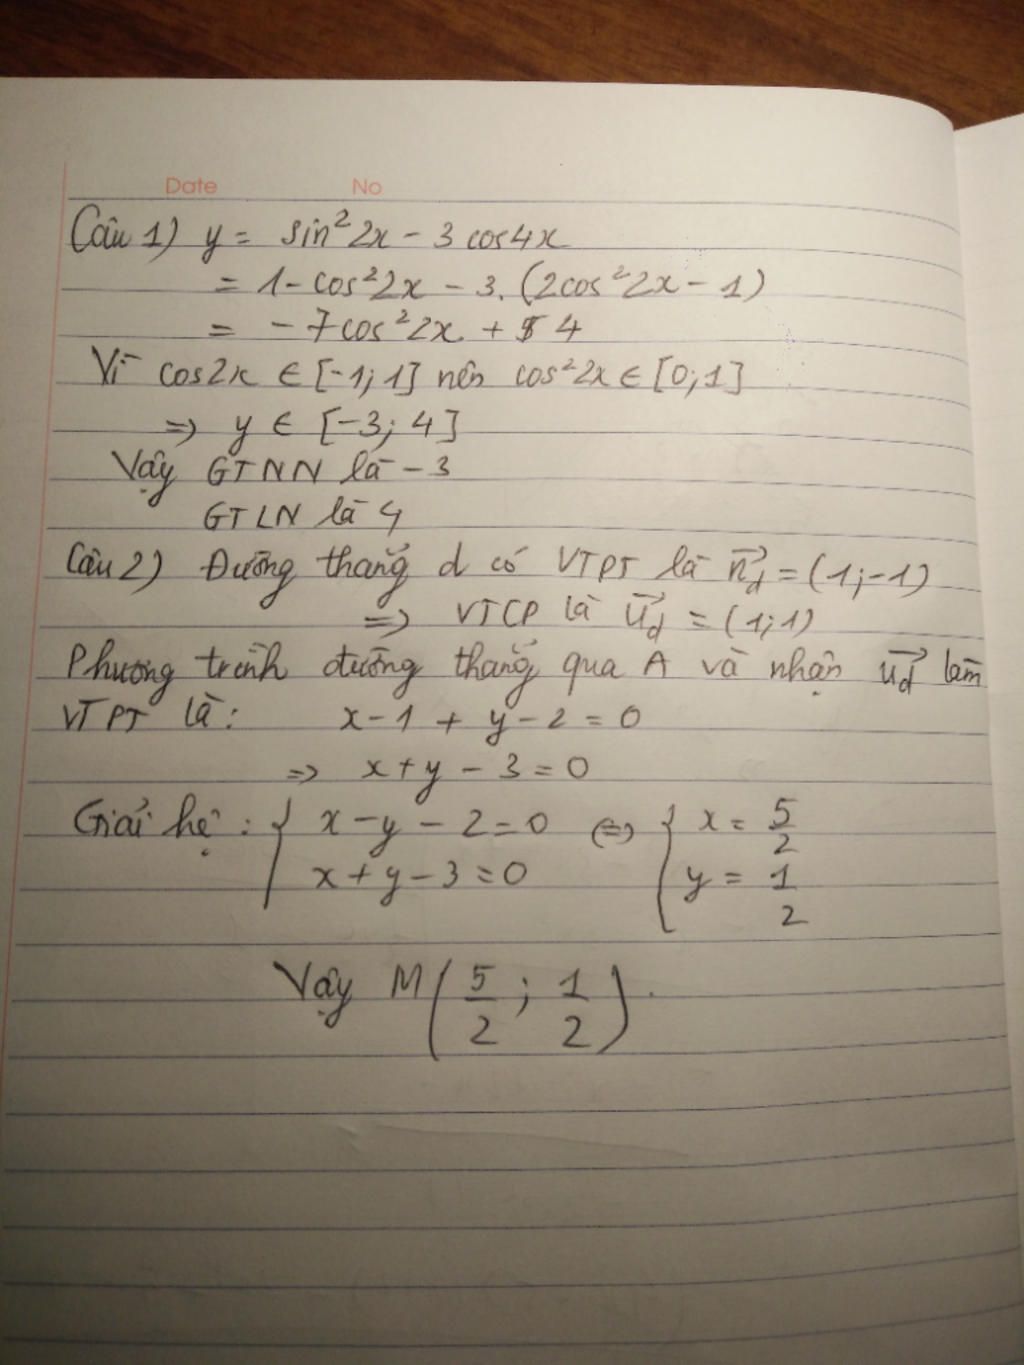 Date No
Câu 1) y = sin²2x - 3cos4x
= 1 - cos²2x - 3.(2cos²2x - 1)
= -7cos²2x + 4
Vì cos2x ∈ [-1;1] nên cos²2x ∈ [0;1]
⇒ y ∈ [-3; 4]
Vậy GTNN là -3
GTLN là 4
Câu 2) Đường thẳng d có VTPT là n⃗_d = (1;-1)
⇒ VTCP là u⃗_d = (1;1)
Phương trình đường thẳng qua A và nhận u⃗_d làm
VTPT là: x-1 + y-2 = 0
⇒ x+y-3=0
Giải hệ: { x-y-2=0 ⇔ { x = 5/2
x+y-3=0 y = 1/2
Vậy M(5/2; 1/2).